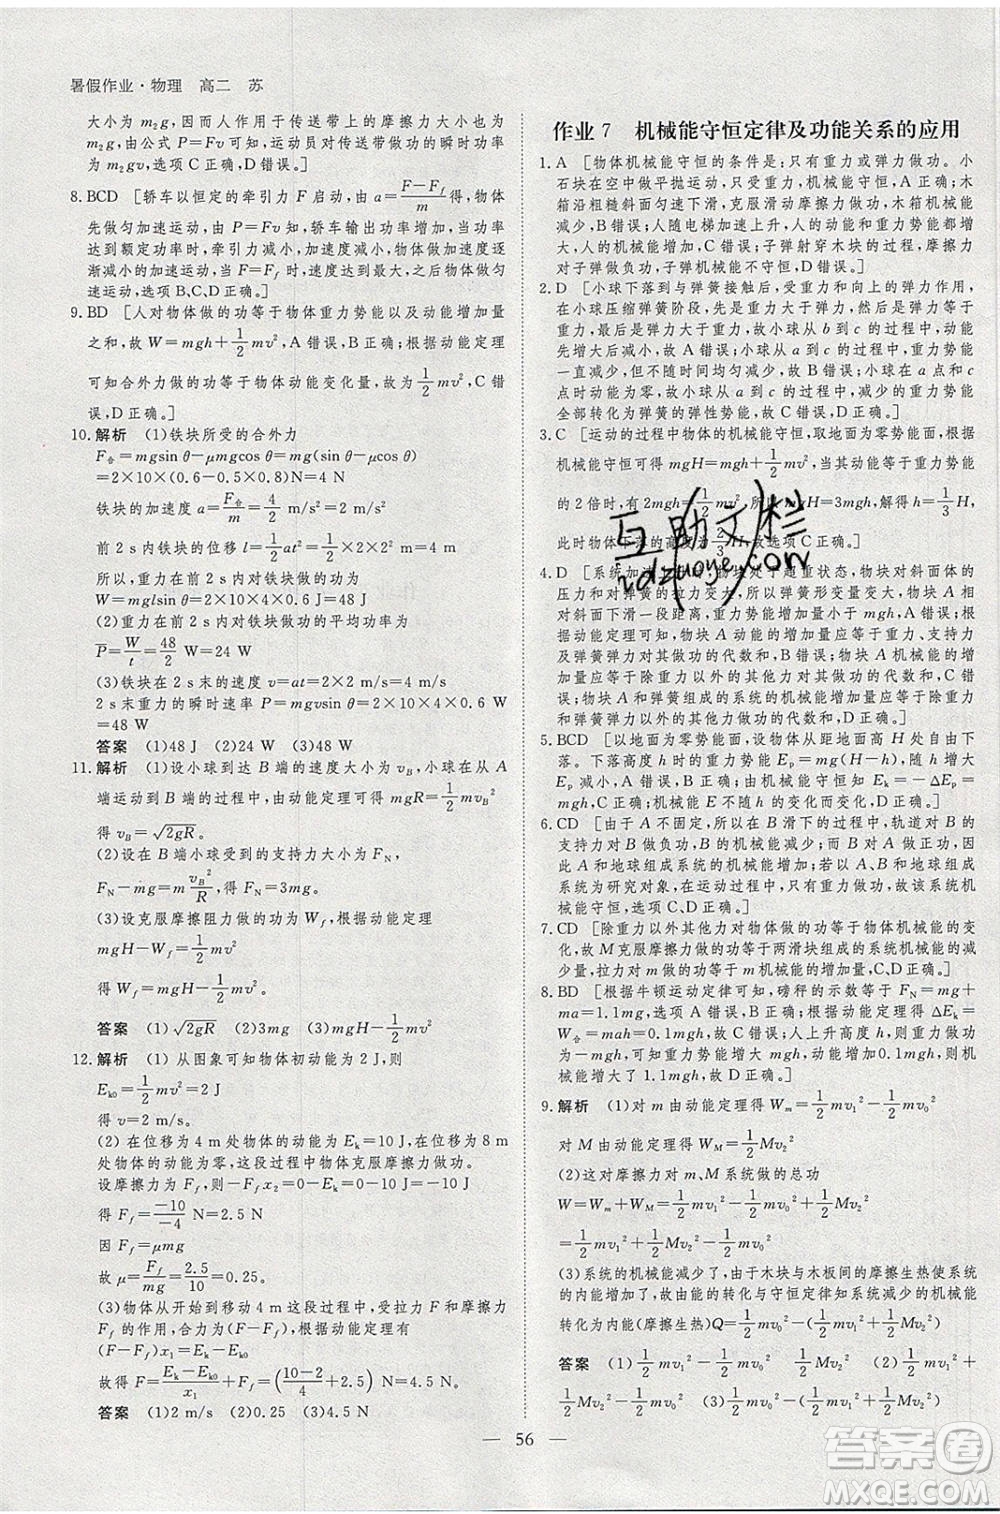 暑假作业·物理　高二　苏
大小为 m₂g，因而人作用于传送带上的摩擦力大小为 m₂g，
由公式 P=Fv 可知，运动员对传送带做功的瞬时功率为
m₂gv，选项 C 正确，D 错误。]
8. BCD　[轿车以恒定的牵引力 F 启动，由 a=(F-F_f)/m 得，物体
先做匀加速运动，由 P=Fv 知，轿车输出功率增加，当功率
达到额定功率时，牵引力减小，加速度减小，物体做加速度逐
渐减小的加速运动，当 F=F_f 时，速度最大，之后物体做匀
速运动，选项 B、C、D 正确。]
9. BD　[人对物体做的功等于物体重力势能以及动能增加量
之和，故 W=mgh+1/2 mv²，A 错误，B 正确；根据动能定理
可知合外力做的功等于物体动能变化量，为 1/2 mv²，C 错
误，D 正确。]
10. 解析　(1)铁块所受的合外力
F合=mgsin θ-μmgcos θ
=2×10×(0.6-0.5×0.8)N=4 N
铁块的加速度 a=F合/m=4/2 m/s²=2 m/s²
前 2 s 内铁块的位移 l=1/2 at²=1/2×2×2² m=4 m
所以，重力在前 2 s 内对铁块做的功为
W=mglsin θ=2×10×4×0.6 J=48 J
(2)重力在前 2 s 内对铁块做功的平均功率为
P=W/t=48/2 W=24 W
(3)铁块在 2 s 末的速度 v=at=2×2 m/s=4 m/s
2 s 末重力的瞬时速率 P=mgvsin θ=2×10×4×0.6 W
=48 W
答案　(1)48 J　(2)24 W　(3)48 W
11. 解析　(1)设小球到达 B 端的速度大小为 v_B，小球在从 A
端运动到 B 端的过程中，由动能定理可得 mgR=1/2 mv_B²
得 v_B=√2gR。
(2)设在 B 端小球受到的支持力大小为 F_N，
F_N-mg=m v_B²/R，得 F_N=3mg。
(3)设克服摩擦阻力做的功为 W_f，根据动能定理
mgH-W_f=1/2 mv²
得 W_f=mgH-1/2 mv²。
答案　(1)√2gR　(2)3mg　(3)mgH-1/2 mv²
12. 解析　(1) 从图象可知物体初动能为 2 J，则
E_k0=1/2 mv²=2 J
得 v=2 m/s。
(2) 在位移为 4 m 处物体的动能为 E_k=10 J，在位移为 8 m
处物体的动能为零，这段过程中物体克服摩擦力做功。
设摩擦力为 F_f，则 -F_f x₂=0-E_k=0-10 J=-10 J
得 F_f=-10/-4 N=2.5 N
因 F_f=μmg
故 μ=F_f/mg=2.5/10=0.25。
(3)物体从开始到移动 4 m 这段过程中，受拉力 F 和摩擦力
F_f 的作用，合力为 F-F_f，根据动能定理有
(F-F_f)x₁=E_k-E_k0
故得 F=(E_k-E_k0)/x₁+F_f=((10-2)/4+2.5) N=4.5 N。
答案　(1)2 m/s　(2)0.25　(3)4.5 N
作业 7　机械能守恒定律及功能关系的应用
1. A　[物体机械能守恒的条件是：只有重力或弹力做功。小
石块在空中做平抛运动，只有重力做功，机械能守恒，A 正确；木
箱沿粗糙斜面匀速下滑，克服滑动摩擦力做功，木箱机械能
减少，B 错误；人随电梯加速上升，人的动能和重力势能均增
大，人的机械能增大，C 错误；子弹射穿木块的过程，摩擦力
对子弹做负功，子弹机械能不守恒，D 错误。]
2. D　[小球下落到与弹簧接触后，受重力和向上的弹力作用，在
在小球压缩弹簧阶段，只有重力和弹簧的弹力做功，
故小球的动能先增大
后减小，A 错误；小球从 a 到 b 的过程中，动能
减小，C 错误；小球从 a 到 c 的过程，重力势能随位移均匀减小，
但不随时间均匀减小，B 错误；小球在 a 点和 c 点
动能都为零，故小球从 a 到 c 的过程中，重力势能的减少量
全部转化为弹簧的弹性势能，D 正确。]
3. C　[运动的过程中物体的机械能守恒，取地面为零势能面，根
据机械能守恒可得 mgH=mgh+1/2 mv²，当动能为重力势能
的 2 倍时，有 2mgh=1/2 mv²，所以 mgH=3mgh，解得 h=1/3 H，
此时物体下落的高度为 2/3 H，故选 C。]
4. D　[系统加速上升时，物块处于超重状态，物块对斜面体的
压力和对弹簧的拉力变大，所以弹簧形变量变大，物块 A 相
对斜面下滑一段距离，重力势能增加量小于 mgh，A 错误；
根据动能定理可知，物块 A 动能的增加量应等于重力、支持力
及弹簧弹力对其做功的代数和，B 错误；物块 A 机械能的增加
量应等于除重力以外的其他力对其做功的代数和，C 错
误；物块 A 和弹簧组成的系统的机械能增加量应等于除重力
和弹簧弹力以外的其他力做功的代数和，D 正确。]
5. BCD　[以地面为零势能面，物体从距地面高 H 处自由下
落。下落高度 h 时的重力势能 E_p=mg(H-h)，A 错误；
E_p 随 h 增大而减小，机械能守恒知 E_k=-ΔE_p=
mgh，机械能 E 不随 h 的变化而变化，B、C、D 正确。]
6. CD　[由于 A 不固定，所以在 B 滑下的过程中，轨道对 B 的支
持力对 B 做负功，B 的机械能减少；而 B 对 A 做正功，A、B 错误；
因此 A 和地球组成系统的机械能增加；如果以 A、B 和地球组成
系统为研究对象，在 B 下滑的过程中，只有重力做功，故该系统
机械能守恒，选项 C、D 正确。]
7. CD　[除重力以外其他力对物体做的功等于物体机械能的变
化，故 M 克服摩擦力做的功等于两滑块组成的系统机械能的减
少量，拉力对 m 做的功等于 m 机械能的增加量，C、D 正确。]
8. BD　[根据牛顿运动定律可知，磅秤的示数等于 F_N=mg+
ma=1.1mg，选项 A 错误；根据动能定理可得合外力做功
W合=mah=0.1mgh，B 正确；人上升高度 h，则重力做功为
-mgh，可知重力势能增大 mgh，C 错误；动能增大 0.1mgh，
机械能增大了 1.1mgh，D 正确。]
9. 解析　(1)对 m 由动能定理得 W_m=1/2 mv₁²-1/2 mv₀²
对 M 由动能定理得 W_M=1/2 Mv₂²
(2)这对摩擦力对 m、M 系统做的总功
W=W_m+W_M=1/2 mv₁²-1/2 mv₀²+1/2 Mv₂²=1/2 mv₁²+1/2 Mv₂²
-1/2 mv₀²
(3)系统的机械能减少了，由于木块与木板间的摩擦生热使系统
的机械能减少，由能的转化与守恒定律知系统减少的机械能
转化为内能(摩擦生热)Q=1/2 mv₀²-1/2 mv₁²-1/2 Mv₂²
答案　(1)1/2 mv₁²-1/2 mv₀²　1/2 Mv₂²　(2)1/2 mv₁²+
1/2 Mv₂²-1/2 mv₀²　(3)1/2 mv₀²-1/2 mv₁²-1/2 Mv₂²
— 56 —
互助文栏
答案卷
MXQE.COM